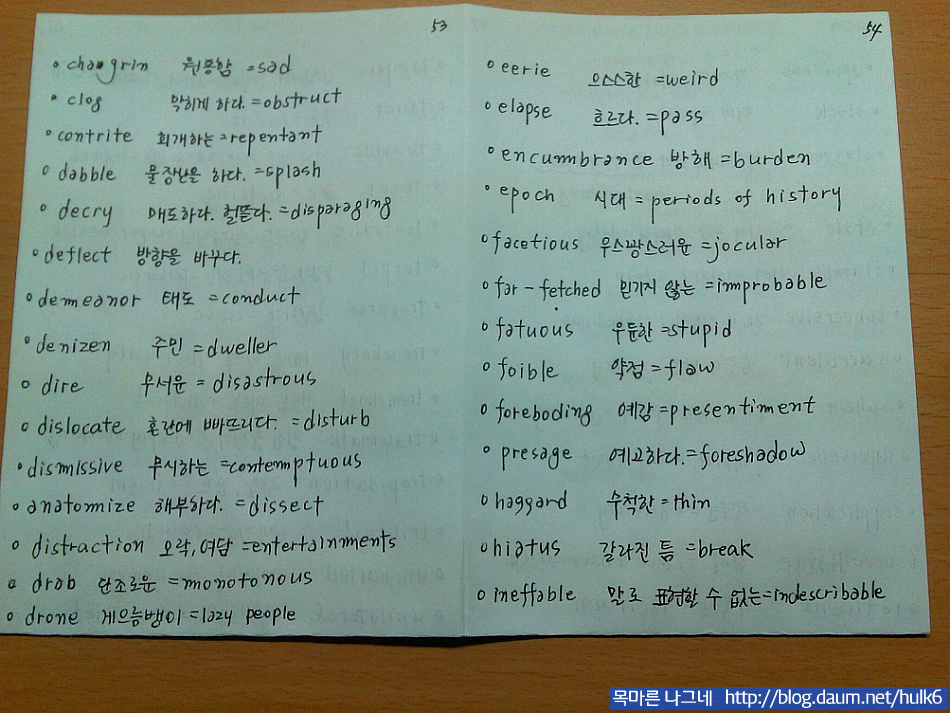 53
◦ chagrin 원통함 =sad
◦ clog 막히게 하다. =obstruct
◦ contrite 회개하는 =repentant
◦ dabble 물장난을 하다. =splash
◦ decry 매도하다. 헐뜯다. =disparaging
◦ deflect 방향을 바꾸다.
◦ demeanor 태도 =conduct
◦ denizen 주민 =dweller
◦ dire 무서운 = disastrous
◦ dislocate 혼란에 빠뜨리다. =disturb
◦ dismissive 무시하는 =contemptuous
◦ anatomize 해부하다. =dissect
◦ distraction 오락,여담 =entertainments
◦ drab 단조로운 =monotonous
◦ drone 게으름뱅이 =lazy people
54
◦ eerie 으스스한 =weird
◦ elapse 흐르다. =pass
◦ encumbrance 방해 =burden
◦ epoch 시대 = periods of history
◦ facetious 우스꽝스러운 =jocular
◦ far-fetched 믿기지 않는 =improbable
◦ fatuous 우둔한 =stupid
◦ foible 약점 =flaw
◦ foreboding 예감 =presentiment
◦ presage 예고하다.=foreshadow
◦ haggard 수척한 =thin
◦ hiatus 갈라진 틈 =break
◦ ineffable 말로 표현할 수 없는=indescribable
목마른 나그네 http://blog.daum.net/hulk6